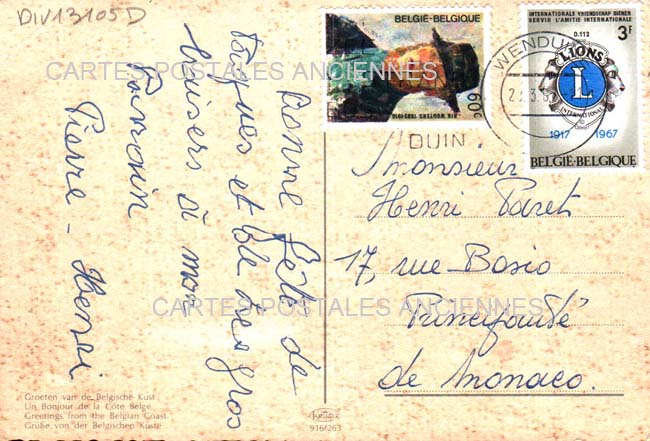 DIV13105D
CARTES POSTALES ANCIENNES
Bonne fête de
Pâques et de gros
baisers à mon
Parrain
Pierre-Henri
BELGIE-BELGIQUE
60c
RIK WOUTERS 1882-1916
WENDUI
DUIN
INTERNATIONALE VRIENDSCHAP DIENEN
SERVIR L'AMITIE INTERNATIONALE
D.112
3F
LIONS
L
INTERNATIONAL
1917 1967
BELGIË-BELGIQUE
Monsieur
Henri Paret
17, rue Bosio
Principauté
de Monaco.
CARTES POSTALES ANCIENNES
Groeten van de Belgische Kust
Un Bonjour de la Côte Belge
Greetings from the Belgian Coast
Grüße von der Belgischen Küste
Krüger
916/263